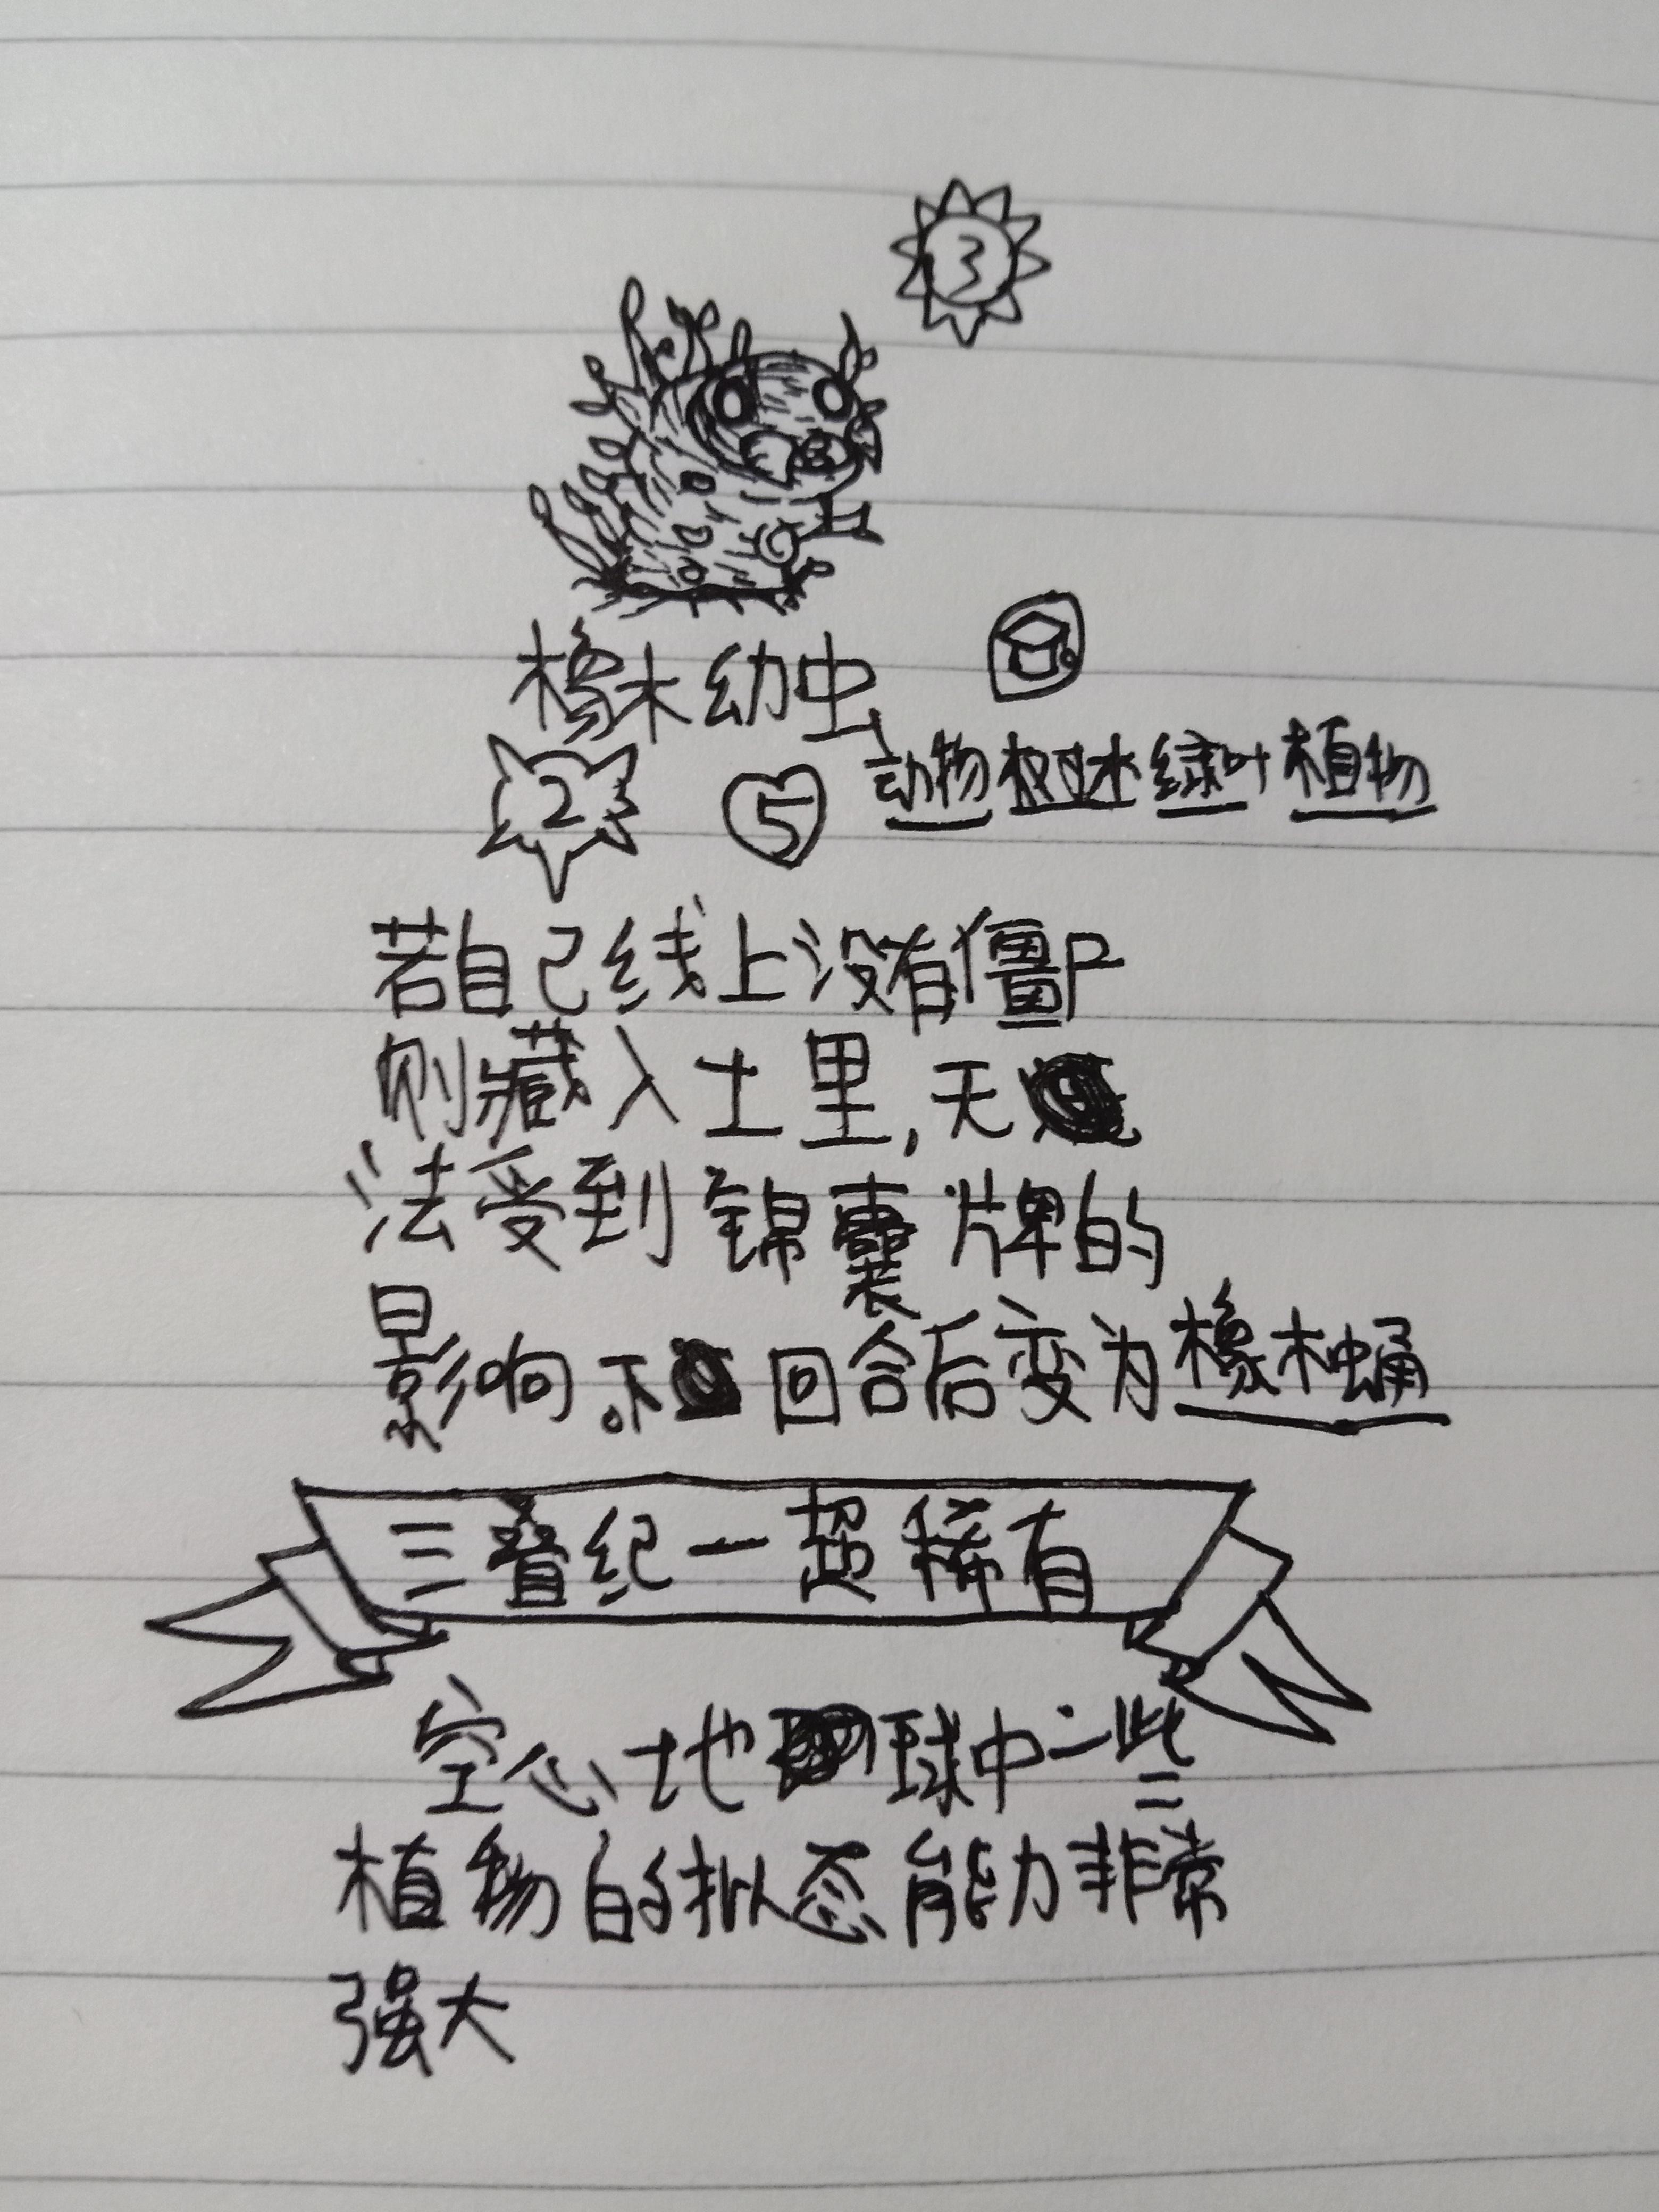 3
橡木幼虫
2 5 动物树木绿叶植物
若自己线上没有僵尸
则藏入土里,无
法受到锦囊牌的
影响。下回合后变为橡木蛹
三叠纪一超稀有
空心地球中一些
植物的拟态能力非常
强大